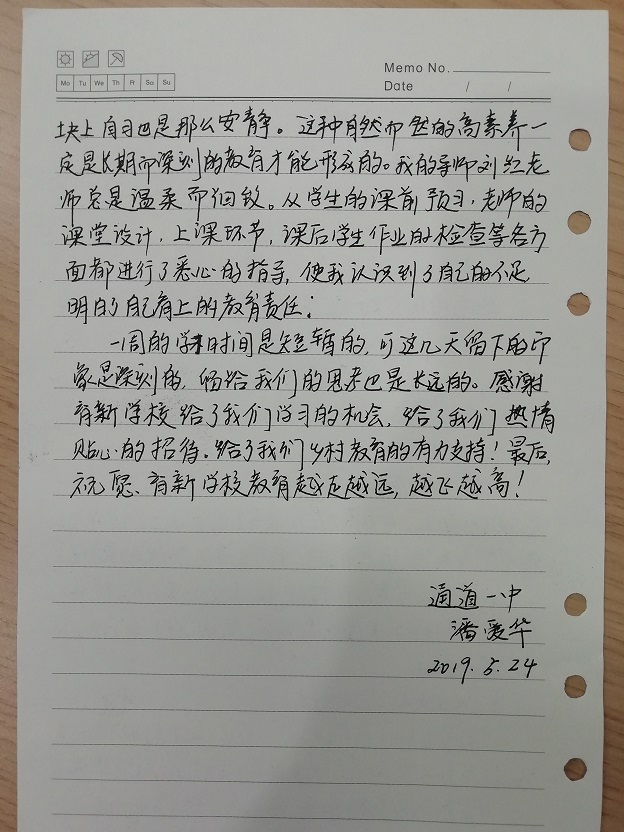 Memo No.
Mo Tu We Th Fr Sa Su
Date / /
块上自习也是那么安静。这种自然而然的高素养一
定是长期而深刻的教育才能形成的。我的导师刘红老
师总是温柔而细致。从学生的课前预习,老师的
课堂设计,上课环节,课后学生作业的检查等各方
面都进行了悉心的指导,使我认识到了自己的不足
明白自己肩上的教育责任;
一周的学习时间是短暂的,可这几天留下的印
象是深刻的,留给我们的思考也是长远的。感谢
育新学校给了我们学习的机会,给了我们热情
贴心的招待。给了我们乡村教育的有力支持!最后,
祝愿、育新学校教育越走越远,越飞越高!
通道一中
潘爱华
2019.5.24